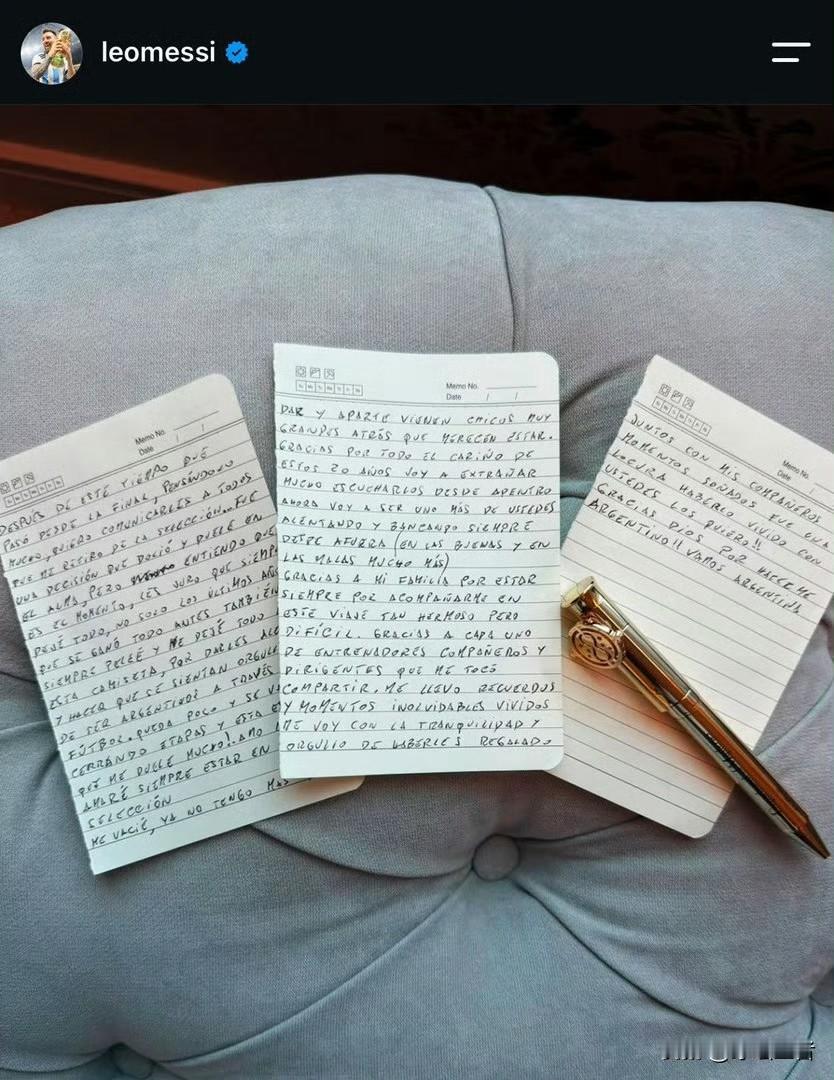 leomessi
Memo No.
Date / /
DESPUÉS DE ESTE TIEMPO QUE
PASÓ DESDE LA FINAL, PENSÁNDOLO
MUCHO, QUIERO COMUNICARLES A TODOS
QUE MI RETIRO DE LA SELECCIÓN.. FUE
UNA DECISIÓN QUE DOLIÓ Y DUELE EN
EL ALMA, PERO ENTIENDO QUE
ES EL MOMENTO, LES JURO QUE SIEMP
DEJÉ TODO, NO SOLO LOS ÚLTIMOS AÑOS
QUE SE GANÓ TODO ANTES TAMBIÉN
SIEMPRE PELEÉ Y ME DEJÉ TODO
ESTA CAMISETA, POR DARLES ALE
Y HACER QUE SE SIENTAN ORGULL
DE SER ARGENTINOS A TRAVÉS
FÚTBOL. QUEDA POCO Y SE V
CERRANDO ETAPAS Y ESTA E
QUE ME DUELE MUCHO!. AMO
AMARÉ SIEMPRE ESTAR EN
SELECCIÓN
ME VACIÉ, YA NO TENGO MÁS
Memo No.
Date / /
DAR Y APARTE VIENEN CHICOS MUY
GRANDES ATRÁS QUE MERECEN ESTAR.
GRACIAS POR TODO EL CARIÑO DE
ESTOS 20 AÑOS VOY A EXTRAÑAR
MUCHO ESCUCHARLOS DESDE ADENTRO
AHORA VOY A SER UNO MÁS DE USTEDES
ALENTANDO Y BANCANDO SIEMPRE
DESDE AFUERA (EN LAS BUENAS Y EN
LAS MALAS MUCHO MÁS)
GRACIAS A MI FAMILIA POR ESTAR
SIEMPRE POR ACOMPAÑARME EN
ESTE VIAJE TAN HERMOSO PERO
DIFÍCIL. GRACIAS A CADA UNO
DE ENTRENADORES COMPAÑEROS Y
DIRIGENTES QUE ME TOCÓ
COMPARTIR. ME LLEVO RECUERDOS
Y MOMENTOS INOLVIDABLES VIVIDOS
ME VOY CON LA TRANQUILIDAD Y
ORGULLO DE HABERLES REGALADO
Memo No.
Date / /
JUNTOS CON MIS COMPAÑEROS
MOMENTOS SOÑADOS FUE UNA
LOCURA HABERLO VIVIDO CON
USTEDES LOS QUIERO!!
GRACIAS DIOS POR HACERME
ARGENTINO!! VAMOS ARGENTINA